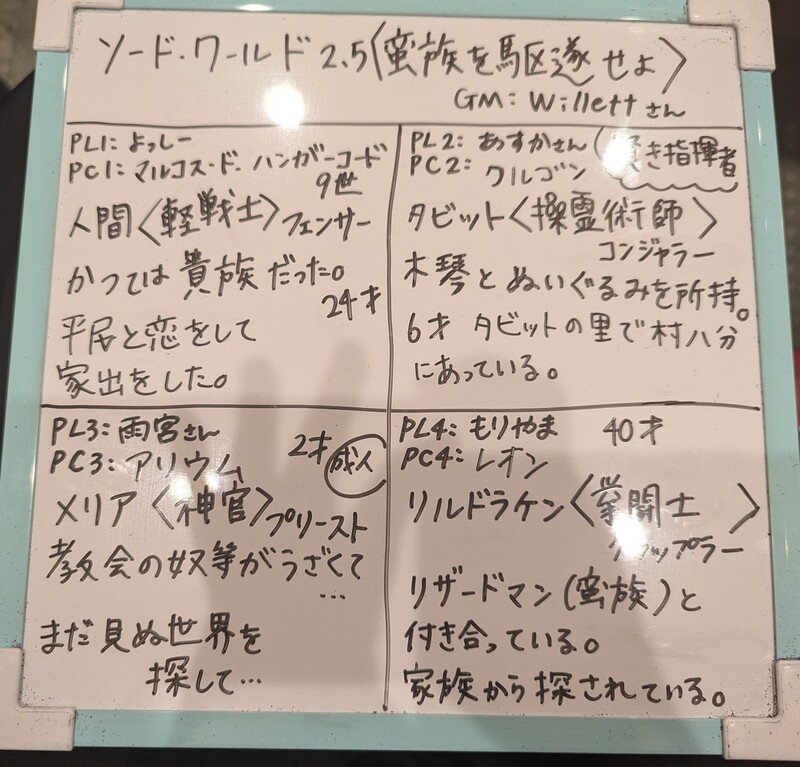 ソード・ワールド2.5〈蛮族を駆逐せよ〉
GM: Willettさん
PL1: よっしー
PC1: マルコス・ド・ハンガーコード
9世
人間〈軽戦士〉フェンサー
かつては貴族だった。
24才
平民と恋をして
家出をした。
PL2: あすかさん
き指揮者
PC2: クルゴン
タビット〈操霊術師〉
コンジャラー
木琴とぬいぐるみを所持。
6才 タビットの里で村八分
にあっている。
PL3: 雨宮さん
2才 成人
PC3: アリウム
メリア〈神官〉プリースト
教会の奴等がうざくて
…
まだ見ぬ世界を
探して…
PL4: もりやま 40才
PC4: レオン
リルドラケン〈拳闘士〉
グラップラー
リザードマン(蛮族)と
付き合っている。
家族から探されている。